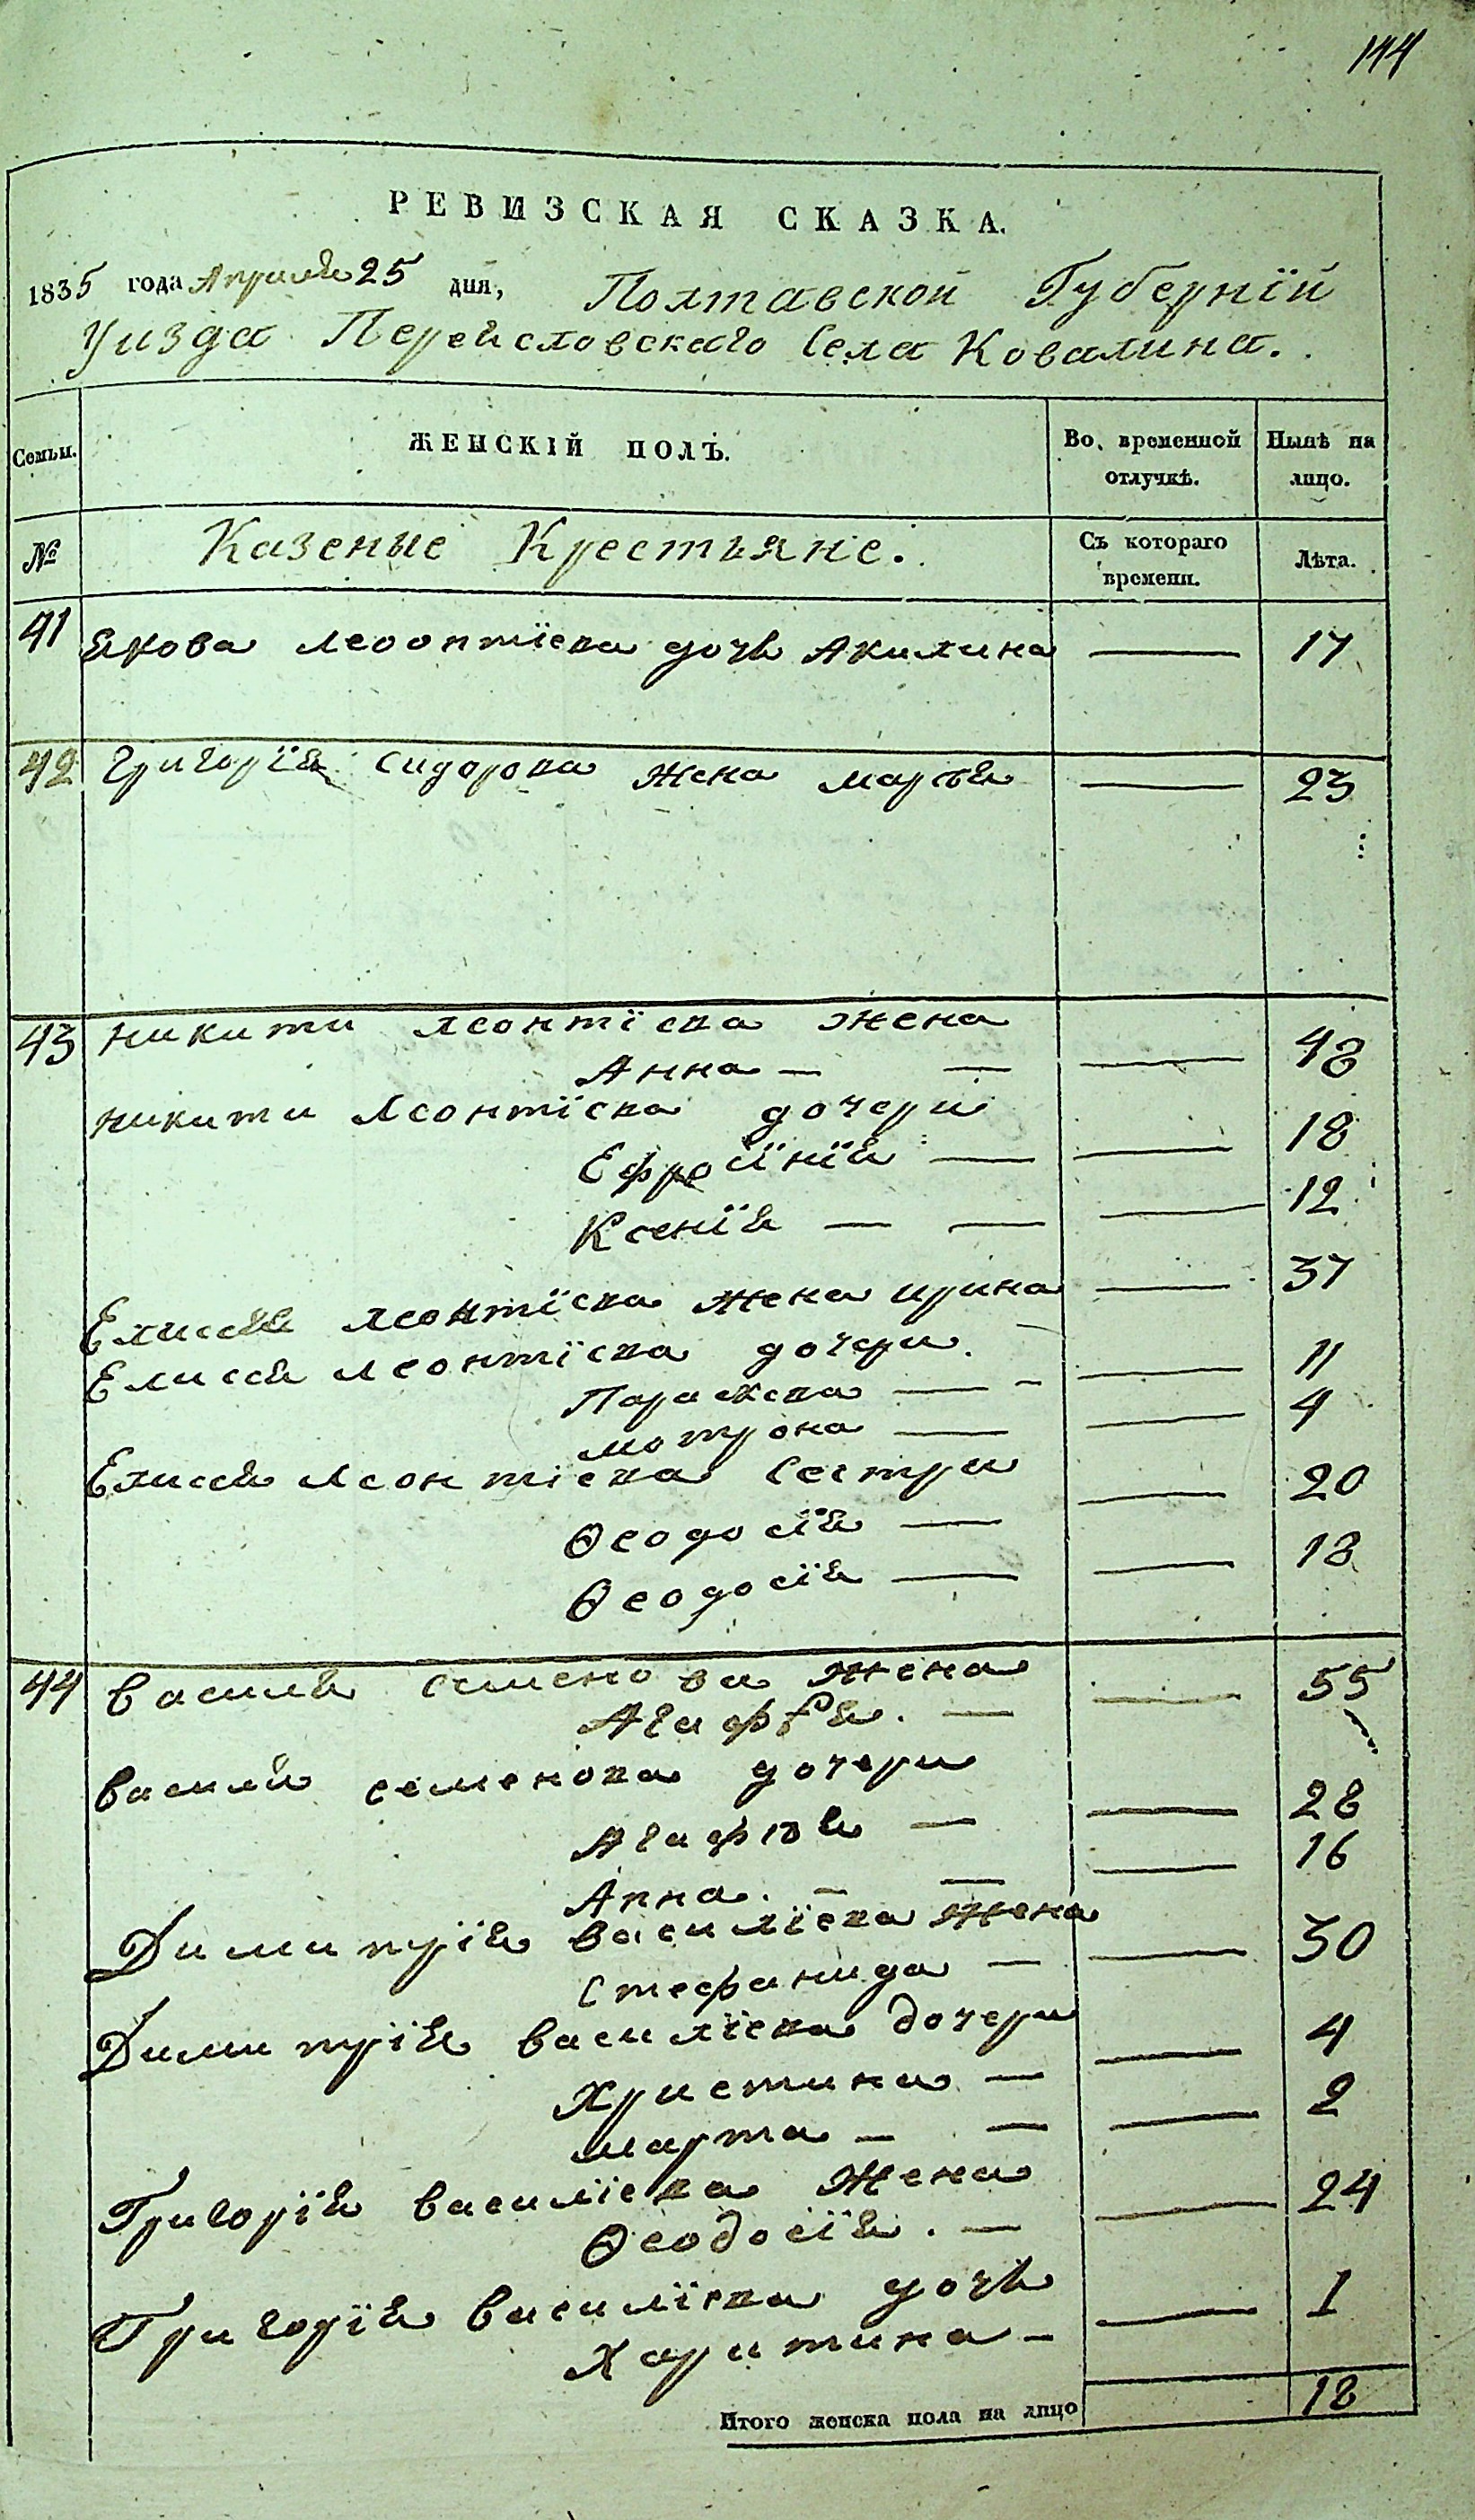 144
РЕВИЗСКАЯ СКАЗКА.
1835 года Апреля 25 дня, Полтавской Губерній
Уизда Переясловскаго Села Ковалина.
Семьи. ЖЕНСКІЙ ПОЛЪ. Во временной отлучкѣ. Нынѣ на лицо.
№ Казеные Крестьяне. Съ котораго времени. Лѣта.
41 Якова Леонтіева дочь Акилина — 17
42 Григорія Сидорова жена марѳя — 23
43 никити леонтіева жена
Анна — — — 48
никити Леонтіева дочери
Ефросінія — — 18
Ксенія — — — 12
Елисея леонтіева жена ирина — 37
Елисея леонтіева дочери.
Параскева — — — 11
мотрона — — 4
Елисея Леонтіева Сестри
Ѳеодосія — — 20
Ѳеодосія — — 18
44 василя Семенова жена
Агафія. — — 55
василя семенова дочери
Агафія — — 28
Анна. — — — 16
Димитрія василіева жена
Стефанида — — 30
Димитрія василіева дочери
Христина — — 4
марта — — — 2
Григорія василіева жена
Ѳеодосія. — — 24
Григорія василіева дочь
Харитина — — 1
Итого женска пола на лицо 18